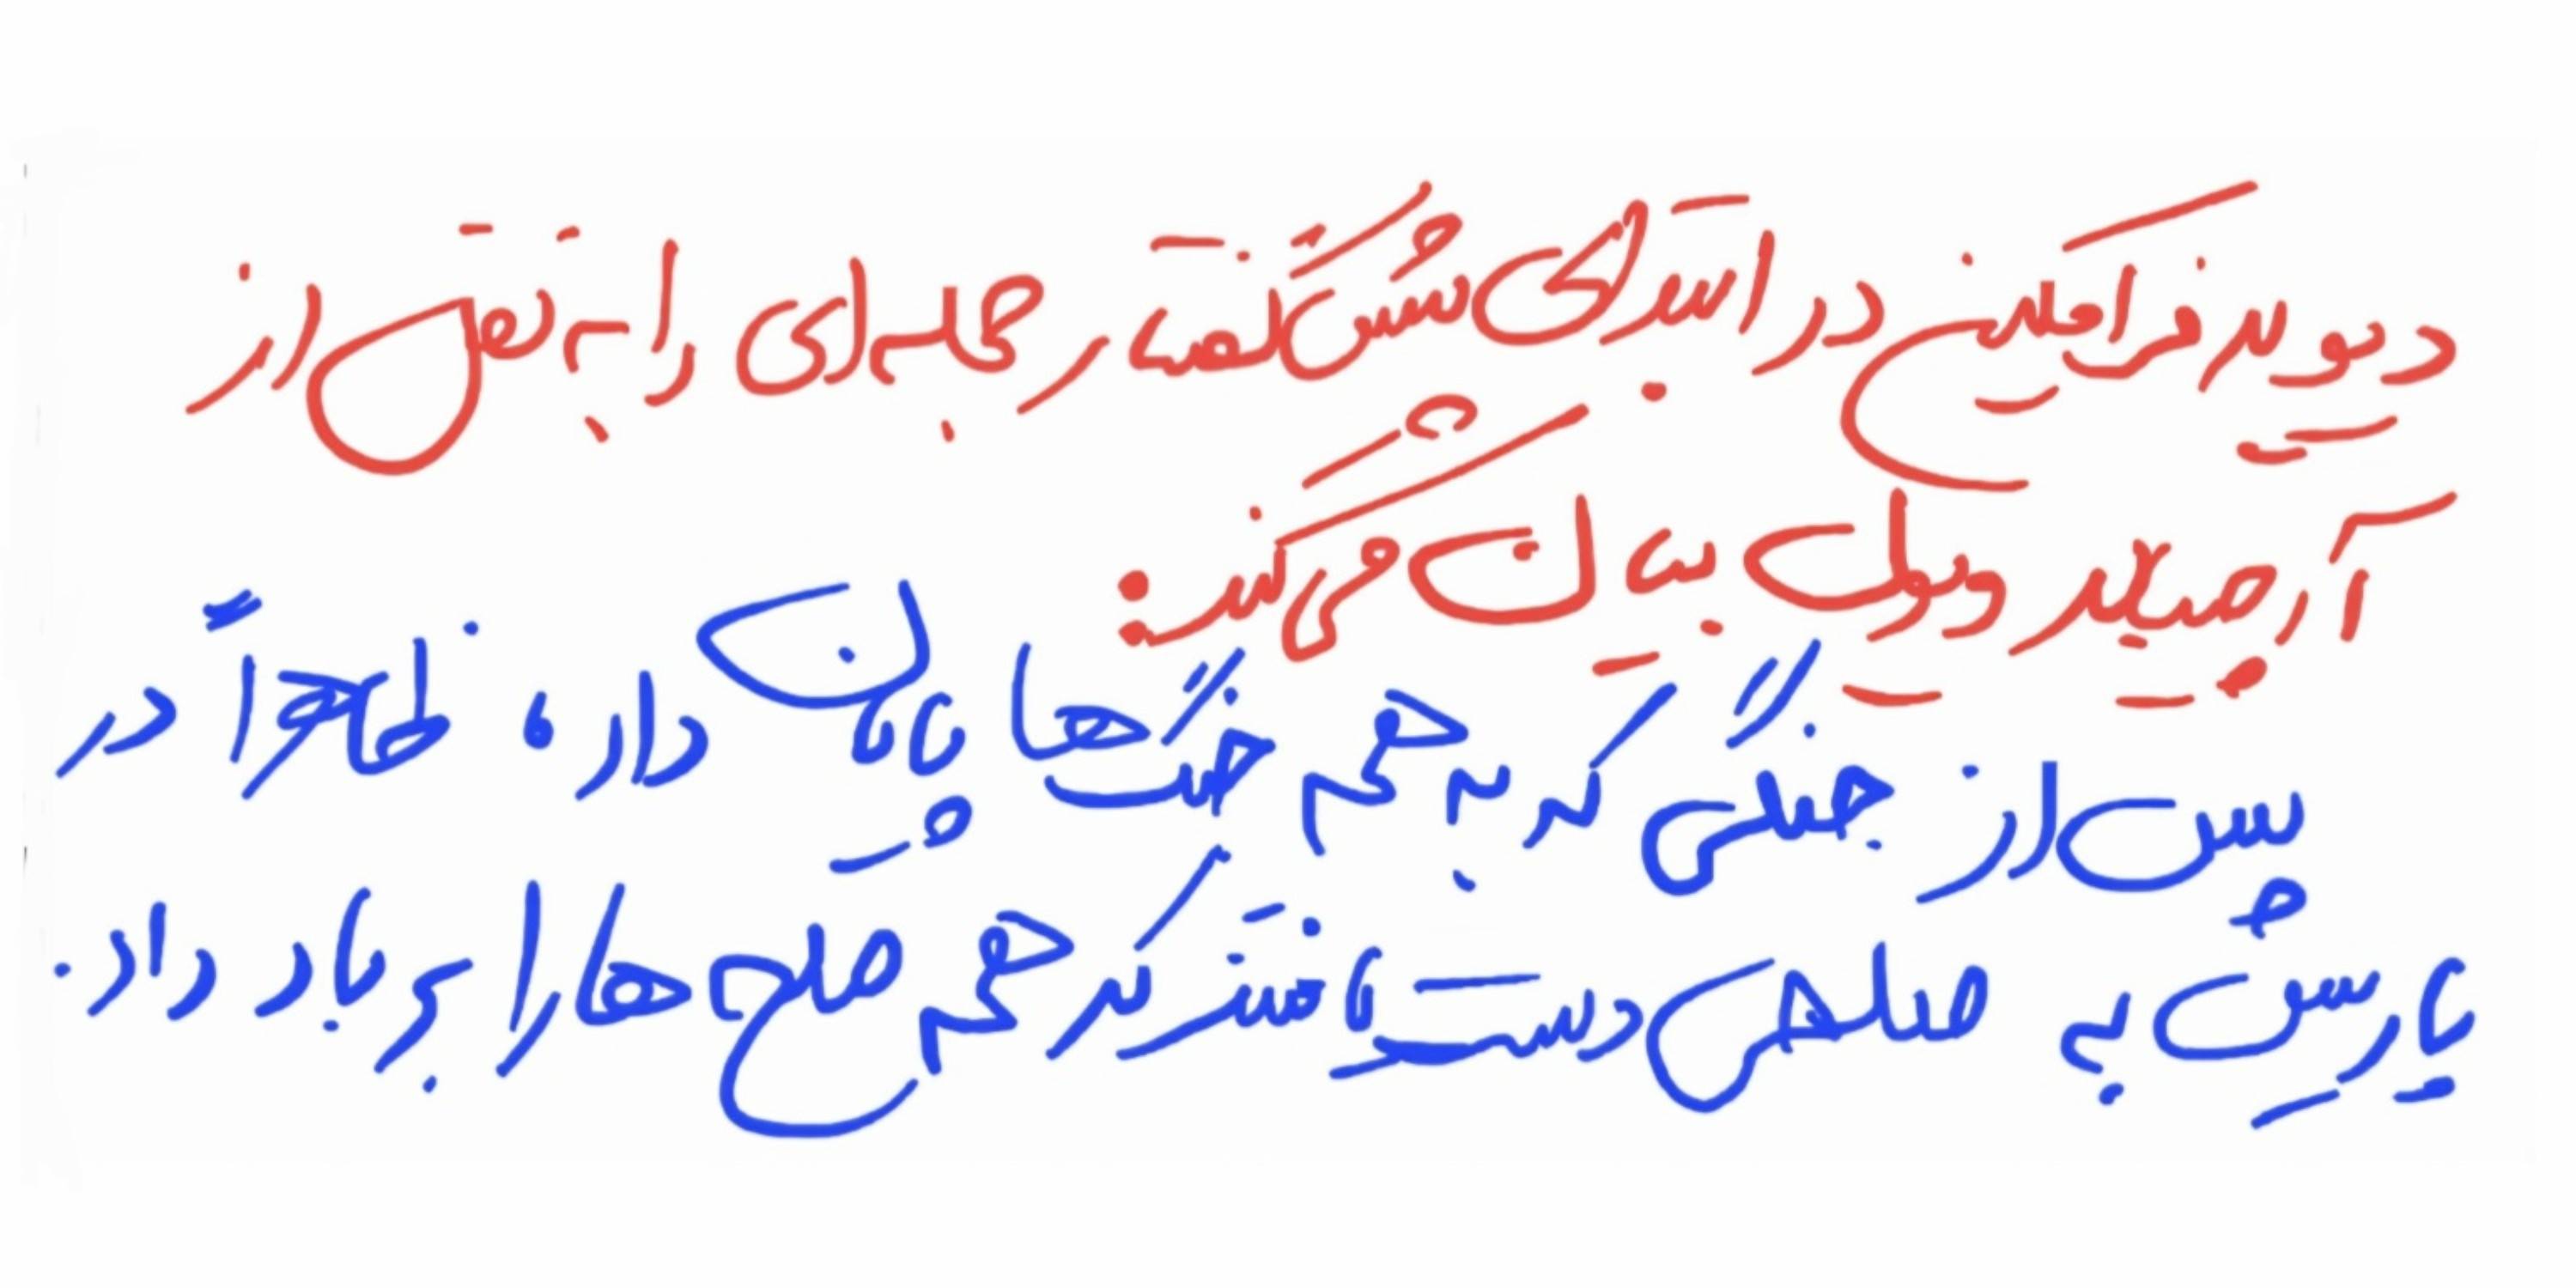 دیوید فرامکین در ابتدای پیشگفتار جمله‌ای را به نقل از
آرچیبلد ویول بیان می‌کند:
پس از جنگی که به همه جنگ‌ها پایان داد، ظاهراً در
پاریس به صلحی دست یافتند که همه صلح ها را بر باد داد.